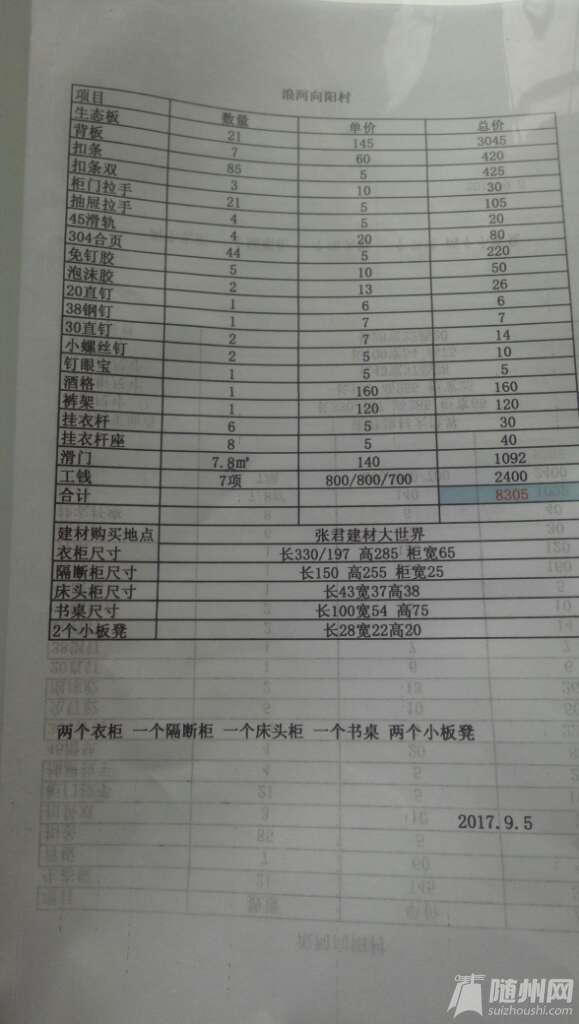 浪河向阳村
项目 数量 单价 总价
生态板 21 145 3045
背板 7 60 420
扣条 85 5 425
扣条双 3 10 30
柜门拉手 21 5 105
抽屉拉手 4 5 20
45滑轨 4 20 80
304合页 44 5 220
免钉胶 5 10 50
泡沫胶 2 13 26
20直钉 1 6 6
38钢钉 1 7 7
30直钉 2 7 14
小螺丝钉 2 5 10
钉眼宝 1 5 5
酒格 1 160 160
裤架 1 120 120
挂衣杆 6 5 30
挂衣杆座 8 5 40
滑门 7.8㎡ 140 1092
工钱 7项 800/800/700 2400
合计 8305
建材购买地点 张君建材大世界
衣柜尺寸 长330/197 高285 柜宽65
隔断柜尺寸 长150 高255 柜宽25
床头柜尺寸 长43宽37高38
书桌尺寸 长100宽54 高75
2个小板凳 长28宽22高20
两个衣柜 一个隔断柜 一个床头柜 一个书桌 两个小板凳
2017.9.5
随州网
suizhoushi.com